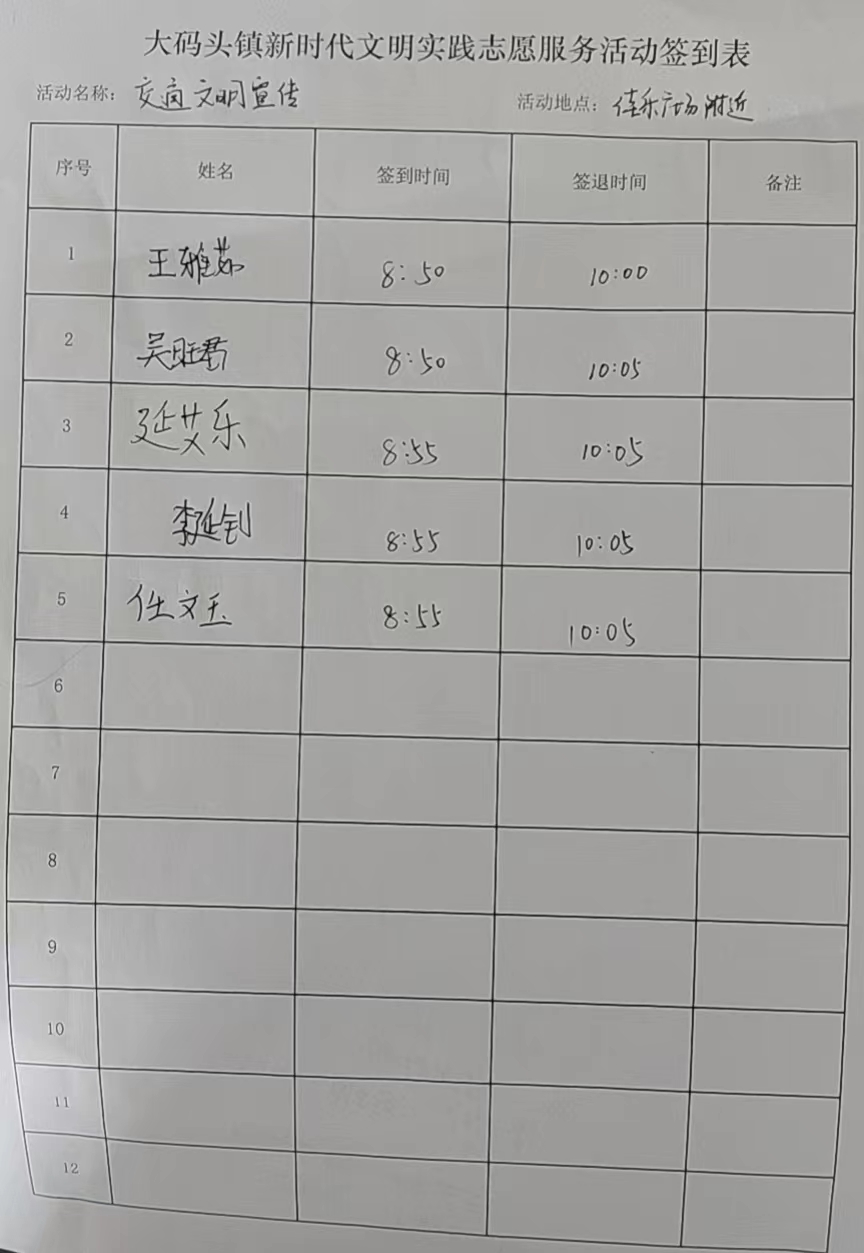 大码头镇新时代文明实践志愿服务活动签到表
活动名称：交通文明宣传 活动地点：佳乐广场附近
序号 姓名 签到时间 签退时间 备注
1 王雅茹 8:50 10:00
2 吴旺君 8:50 10:05
3 延艾乐 8:55 10:05
4 李延钊 8:55 10:05
5 任文玉 8:55 10:05
6
7
8
9
10
11
12